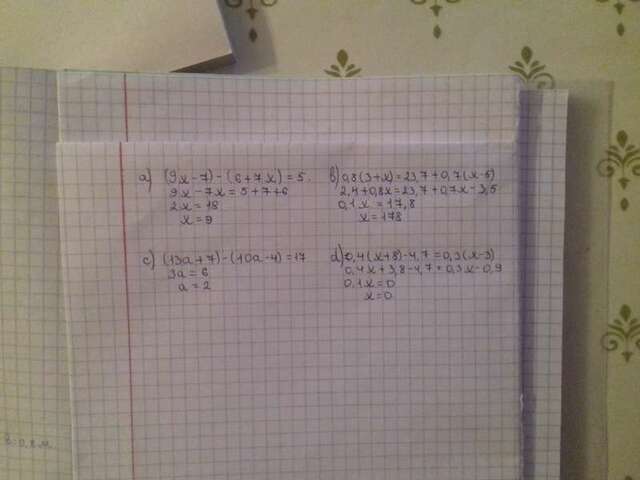 a) (9x-7)-(6+7x)=5.
9x-7x=5+7+6
2x=18
x=9
b) 0,8(3+x)=23,7+0,7(x-5)
2,4+0,8x=23,7+0,7x-3,5
0,1x=17,8
x=178
c) (13a+7)-(10a-4)=17
3a=6
a=2
d) 0,4(x+8)-4,7=0,3(x-3)
0,4x+3,8-4,7=0,3x-0,9
0,1x=0
x=0